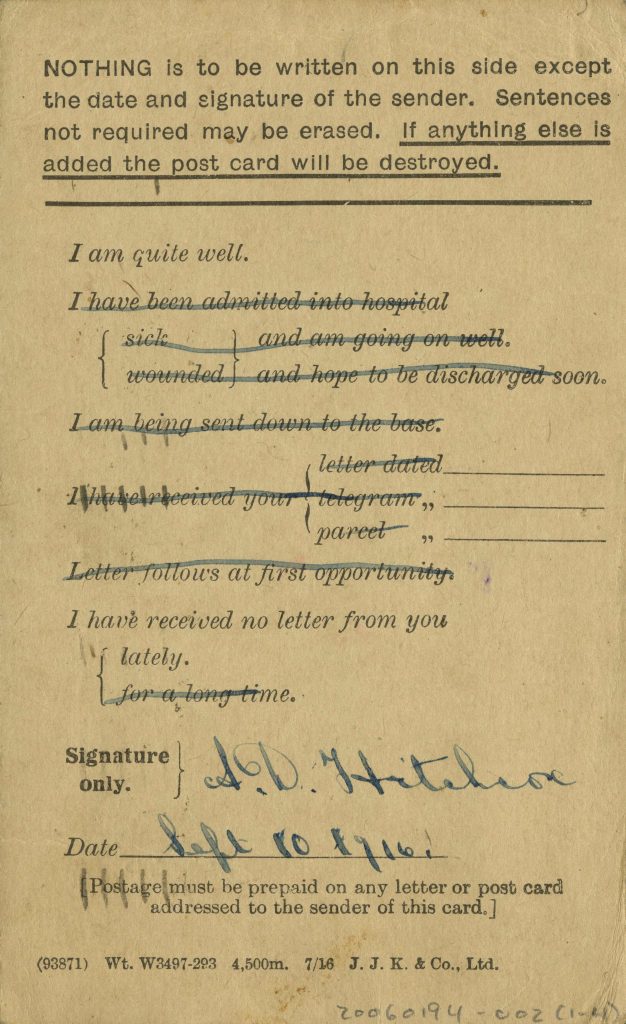 NOTHING is to be written on this side except
the date and signature of the sender. Sentences
not required may be erased. If anything else is
added the post card will be destroyed.
I am quite well.
I have been admitted into hospital
{ sick } and am going on well.
{ wounded } and hope to be discharged soon.
I am being sent down to the base.
letter dated
I have received your { telegram „
parcel „
Letter follows at first opportunity.
I have received no letter from you
{ lately.
for a long time.
Signature
only. } A. D. Hitchcox
Date Sept 10 1916.
[Postage must be prepaid on any letter or post card
addressed to the sender of this card.]
(93871) Wt. W3497-293 4,500m. 7/16 J. J. K. & Co., Ltd.
20060194-002 (1-4)